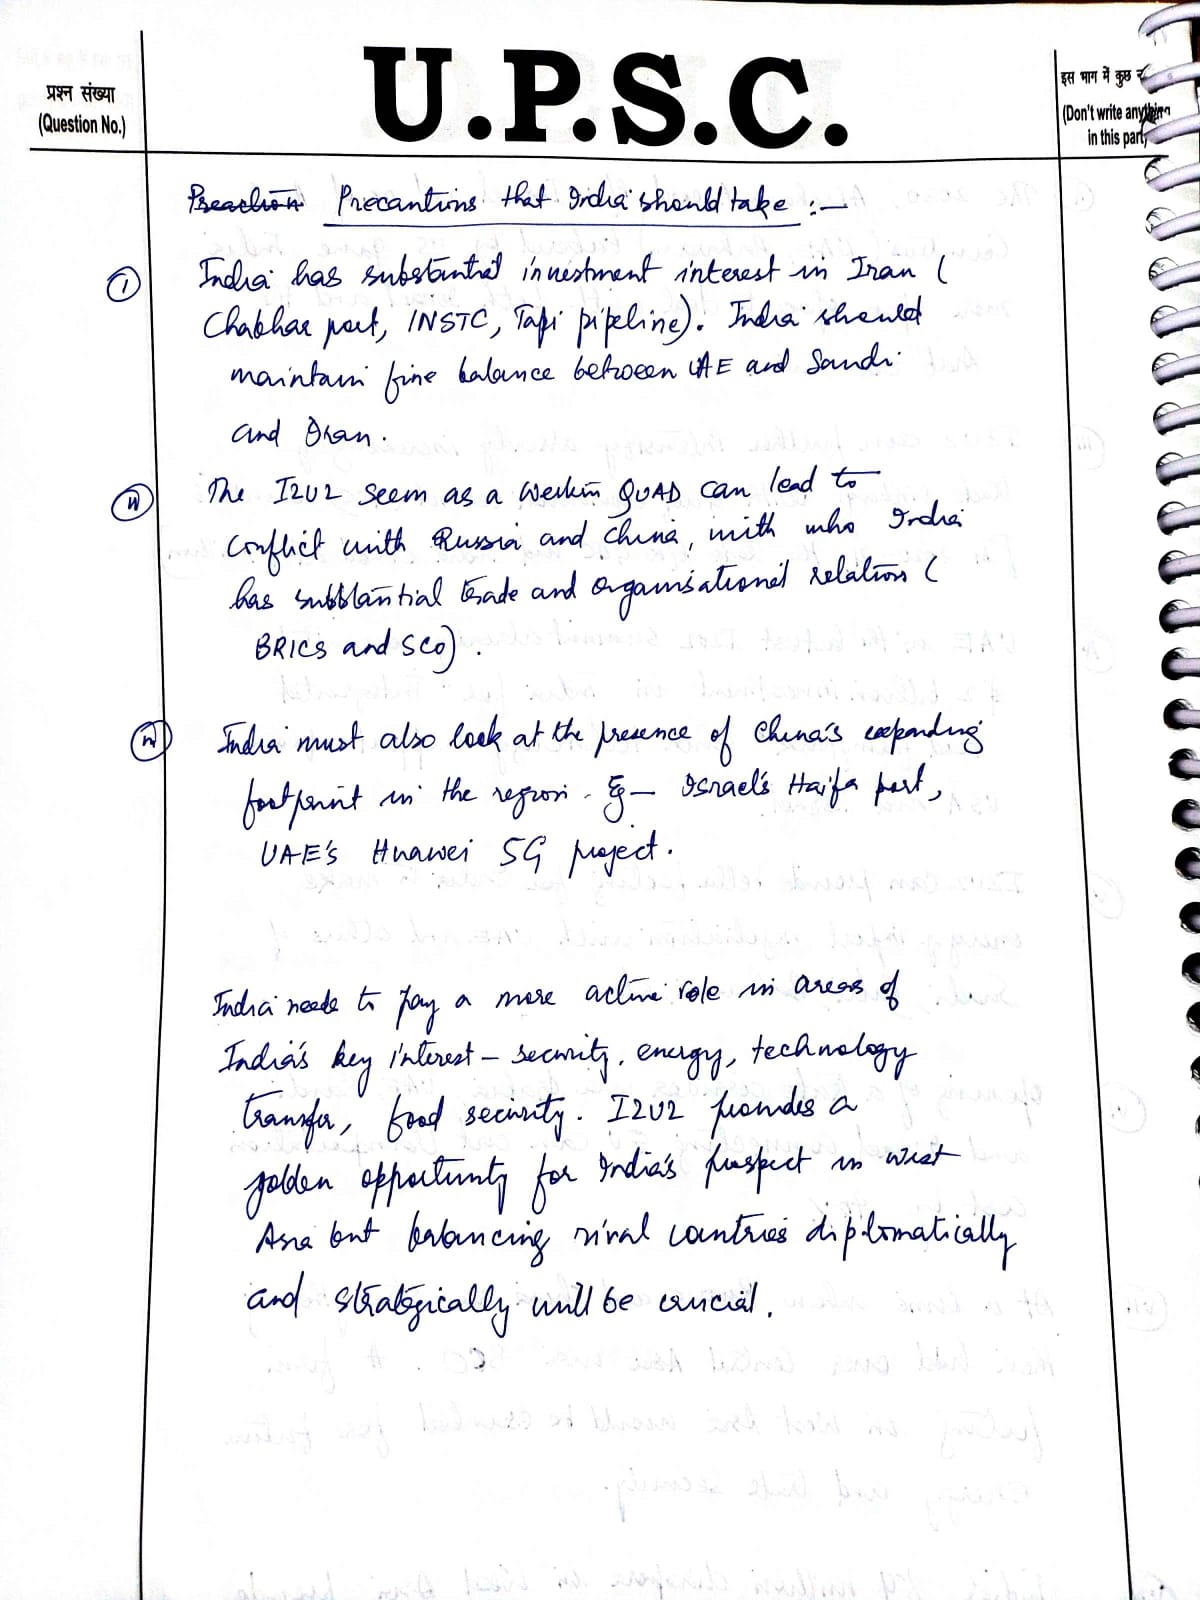 प्रश्न संख्या
(Question No.)
U.P.S.C.
इस भाग में कुछ
(Don't write anything
in this part
Preaction Precautions that India should take :-
(i) India has substantial investment interest in Iran (
Chabhar port, INSTC, Tapi pipeline). India should
maintain fine balance between UAE and Saudi
and Iran.
(ii) The I2U2 seem as a Western QUAD can lead to
conflict with Russia and China, with who India
has substantial trade and organisational relation (
BRICS and SCO).
India must also look at the presence of China's expanding
footprint in the region. Eg- Israel's Haifa port,
UAE's Huawei 5G project.
India needs to pay a more active role in areas of
India's key interest - security, energy, technology
transfer, food security. I2U2 provides a
golden opportunity for India's prospect in West
Asia but balancing rival countries diplomatically
and strategically will be crucial.